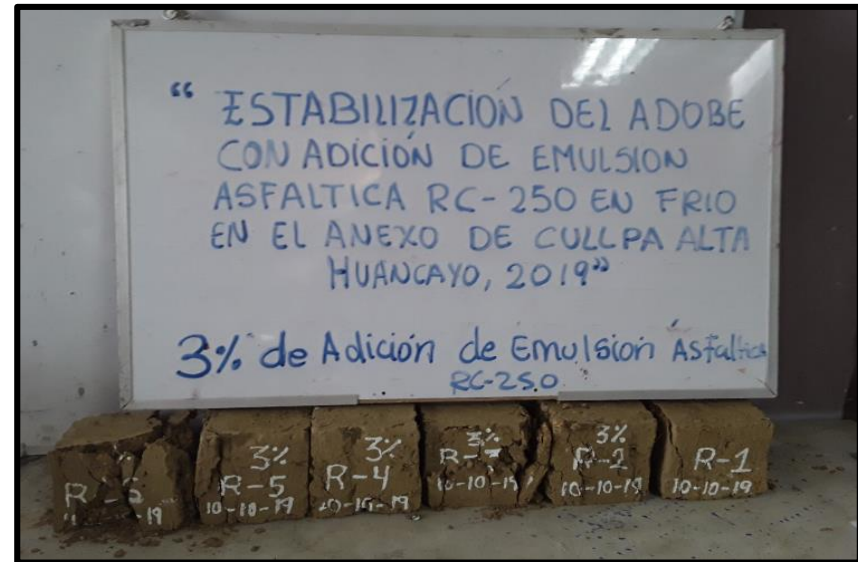 “ ESTABILIZACIÓN DEL ADOBE
CON ADICIÓN DE EMULSION
ASFALTICA RC-250 EN FRIO
EN EL ANEXO DE CULLPA ALTA
HUANCAYO, 2019”
3% de Adición de Emulsión Asfaltica
RC-250
3%
R-5
10-10-19
3%
R-4
10-10-19
3%
10-10-19
3%
R-2
10-10-19
R-1
10-10-19